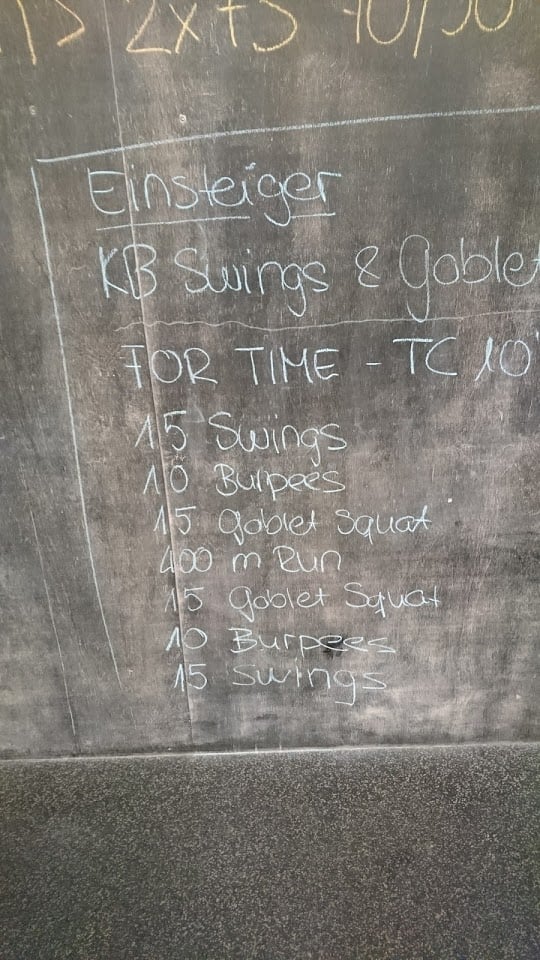 2x
Einsteiger
KB Swings & Goblet
FOR TIME - TC 10'
15 Swings
10 Burpees
15 Goblet Squat
400 m Run
15 Goblet Squat
10 Burpees
15 Swings